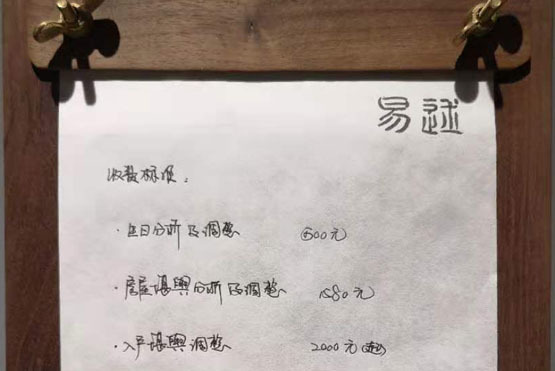 易述
收费标准：
·生日分析及调整 600元
·房屋堪舆分析及调整 1580元
·入户堪舆调整 2000元(起)